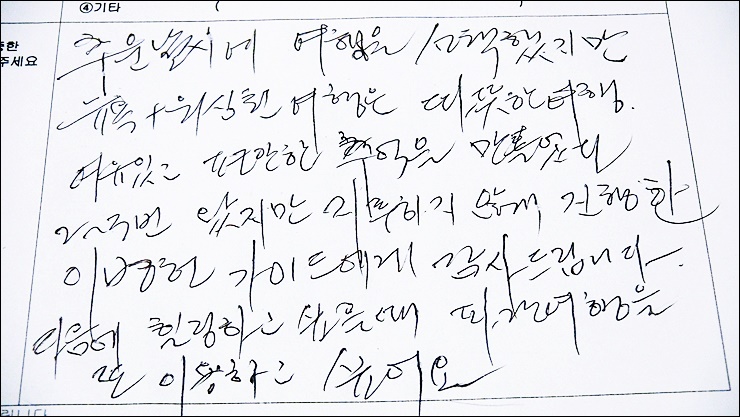 ④기타 (
한
주세요
추운날씨에 여행을 선택했지만
유쾌 + 위상천 여행은 따뜻한여행.
여유있고 편안한 추억을 만들었다
2~3번 왔지만 지루하지 않게 진행한
이병헌 가이드에게 감사드립니다.
다음에 힐링하고 싶을때 여행을
또 이용하고 싶어요